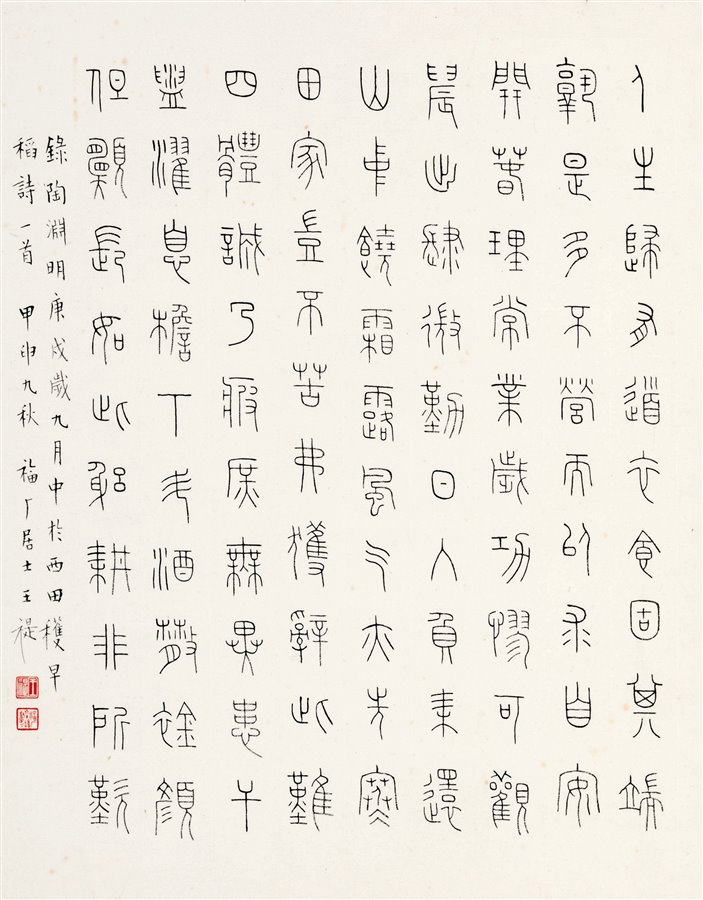 人生歸有道衣食固其端
孰是多不營而以求自安
開春理常業歲功憀可觀
晨出肆微勤日入負耒還
山中饒霜露風气亦先寒
田家豈不苦弗獲辭此難
四體誠乃疲庶無異患干
盥濯息檐下斗酒散襟顏
但願長如此躬耕非所歎
錄陶淵明庚戌歲九月中於西田穫早
稻詩一首 甲申九秋 福厂居士王禔